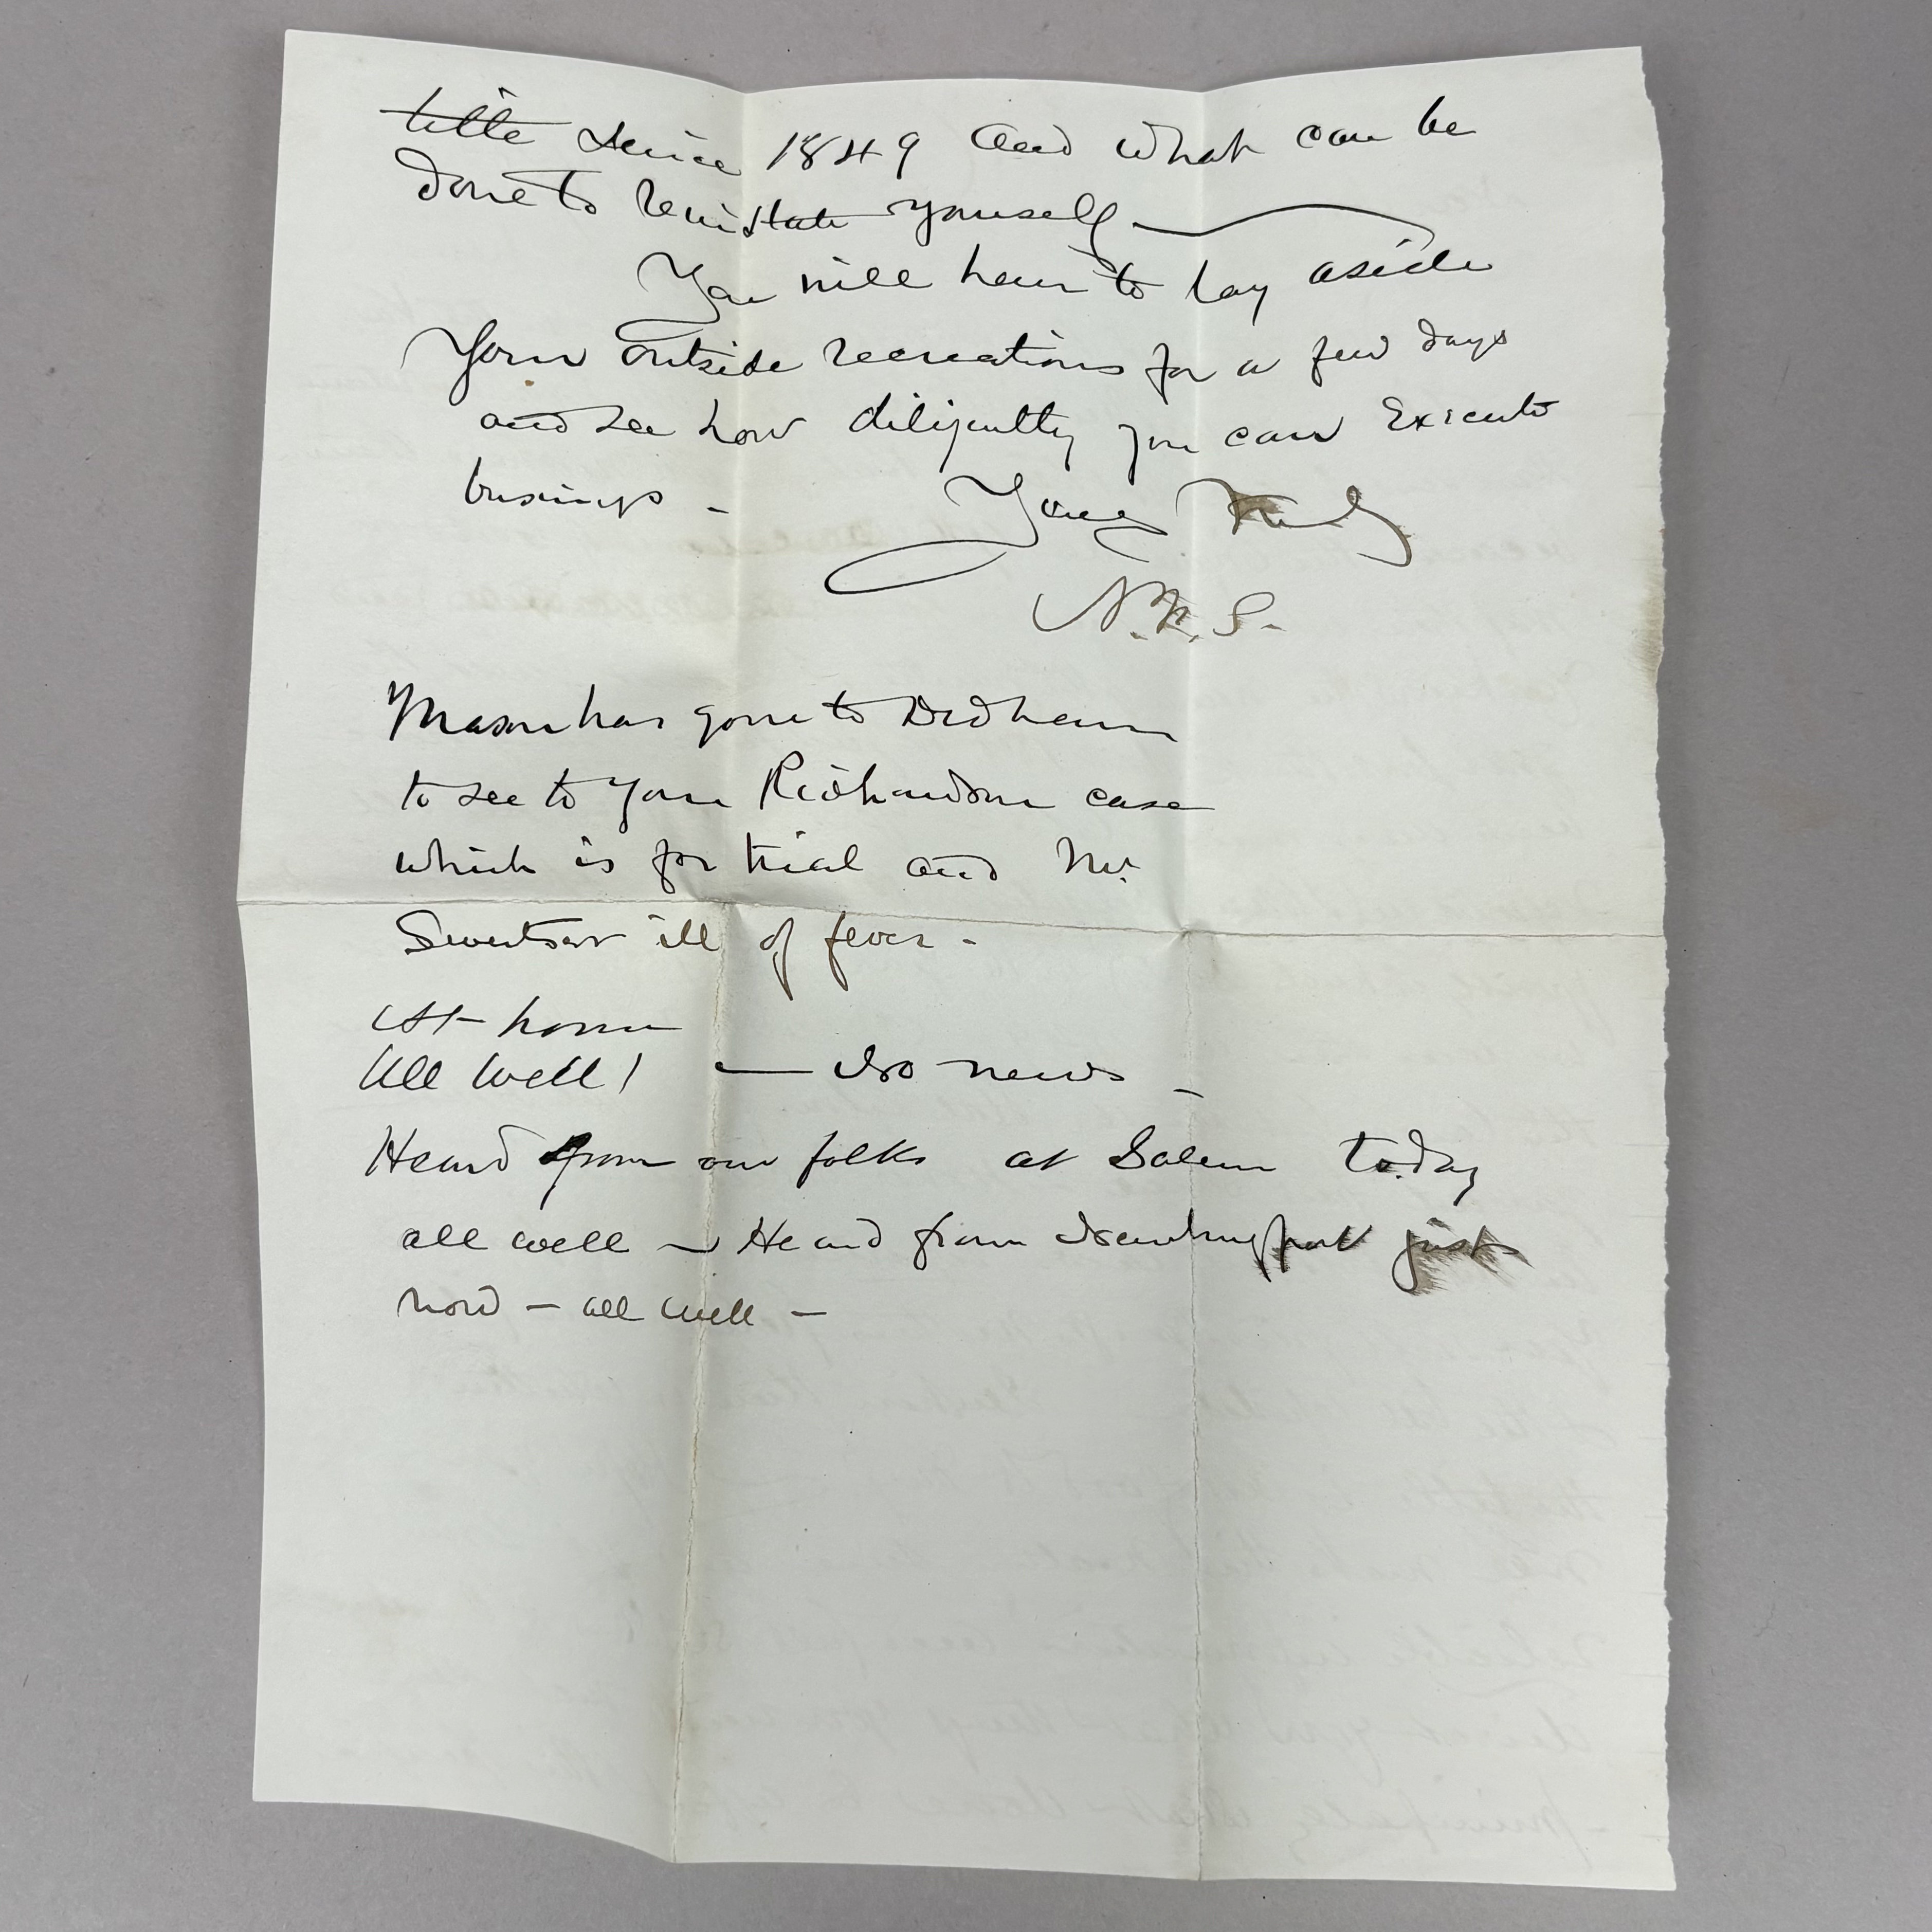 title since 1849 and what can be
done to reinstate yourself —
You will have to lay aside
Your outside recreations for a few days
and see how diligently you can Execute
business - Yours Truly
N.K.S.
Mason has gone to Dedham
to see to your Richardson case
which is for trial and Mr.
Sweetser ill of fever -
At home
All well! — No news -
Heard from our folks at Salem today
all well — Heard from Newburyport just
now — all well —